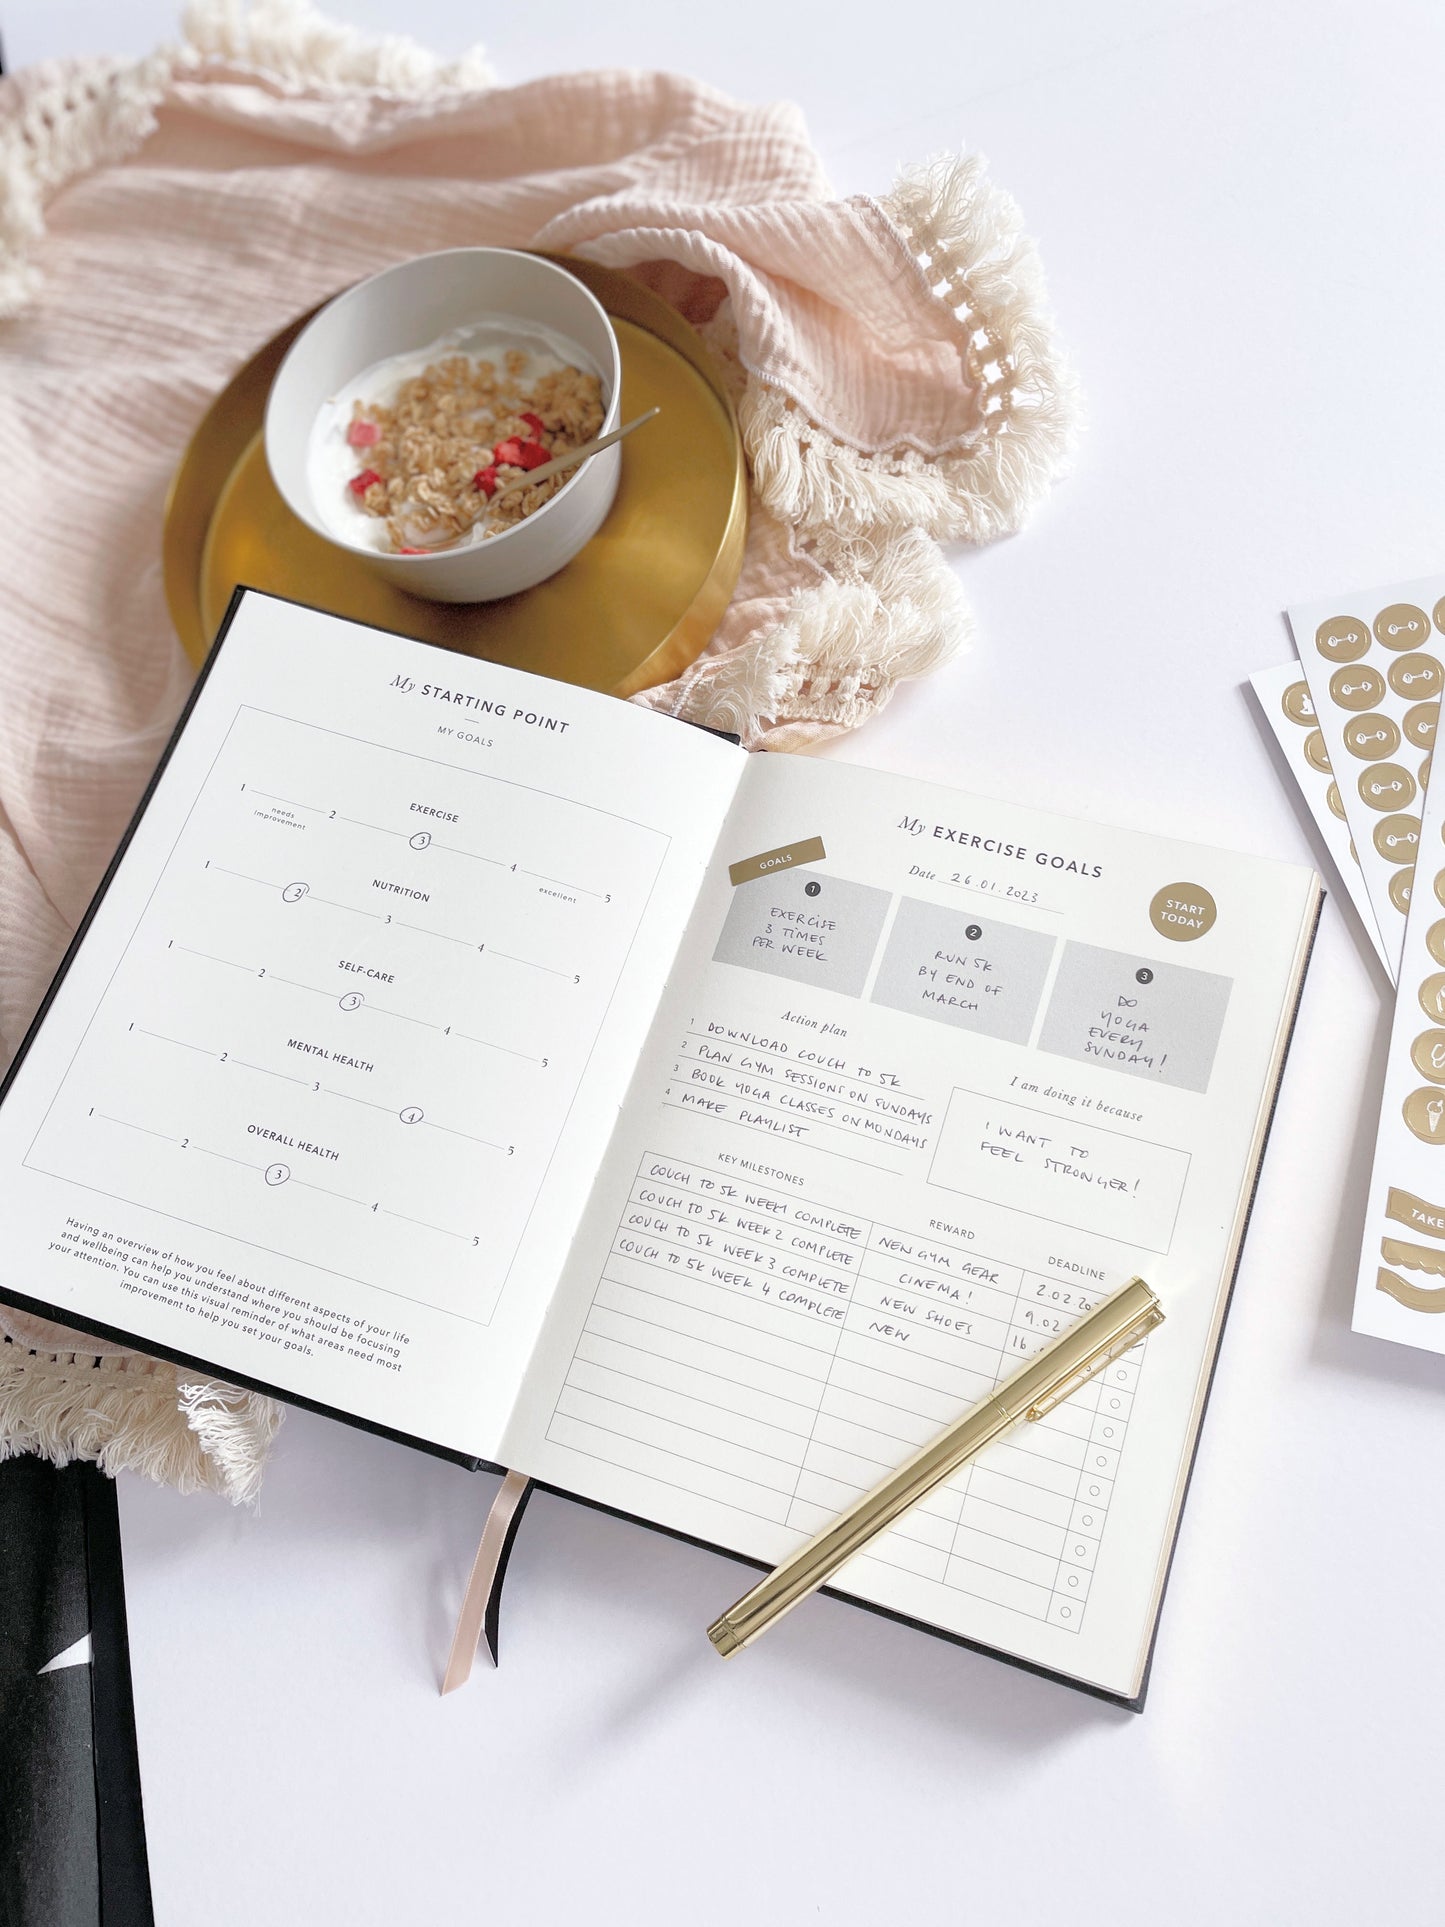 My STARTING POINT
MY GOALS
EXERCISE
1 2 3 4 5
needs
improvement
excellent
NUTRITION
1 2 3 4 5
SELF-CARE
1 2 3 4 5
MENTAL HEALTH
1 2 3 4 5
OVERALL HEALTH
1 2 3 4 5
Having an overview of how you feel about different aspects of your life
and wellbeing can help you understand where you should be focusing
your attention. You can use this visual reminder of what areas need most
improvement to help you set your goals.
My EXERCISE GOALS
Date 26.01.2023
GOALS
START
TODAY
1
EXERCISE
3 TIMES
PER WEEK
2
RUN 5K
BY END OF
MARCH
3
DO
YOGA
EVERY
SUNDAY!
Action plan
1 DOWNLOAD COUCH TO 5K
2 PLAN GYM SESSIONS ON SUNDAYS
3 BOOK YOGA CLASSES ON MONDAYS
4 MAKE PLAYLIST
I am doing it because
I WANT TO
FEEL STRONGER!
KEY MILESTONES REWARD DEADLINE
COUCH TO 5K WEEK 1 COMPLETE NEW GYM GEAR 2.02.20
COUCH TO 5K WEEK 2 COMPLETE CINEMA! 9.02
COUCH TO 5K WEEK 3 COMPLETE NEW SHOES 16.
COUCH TO 5K WEEK 4 COMPLETE NEW
TAKE